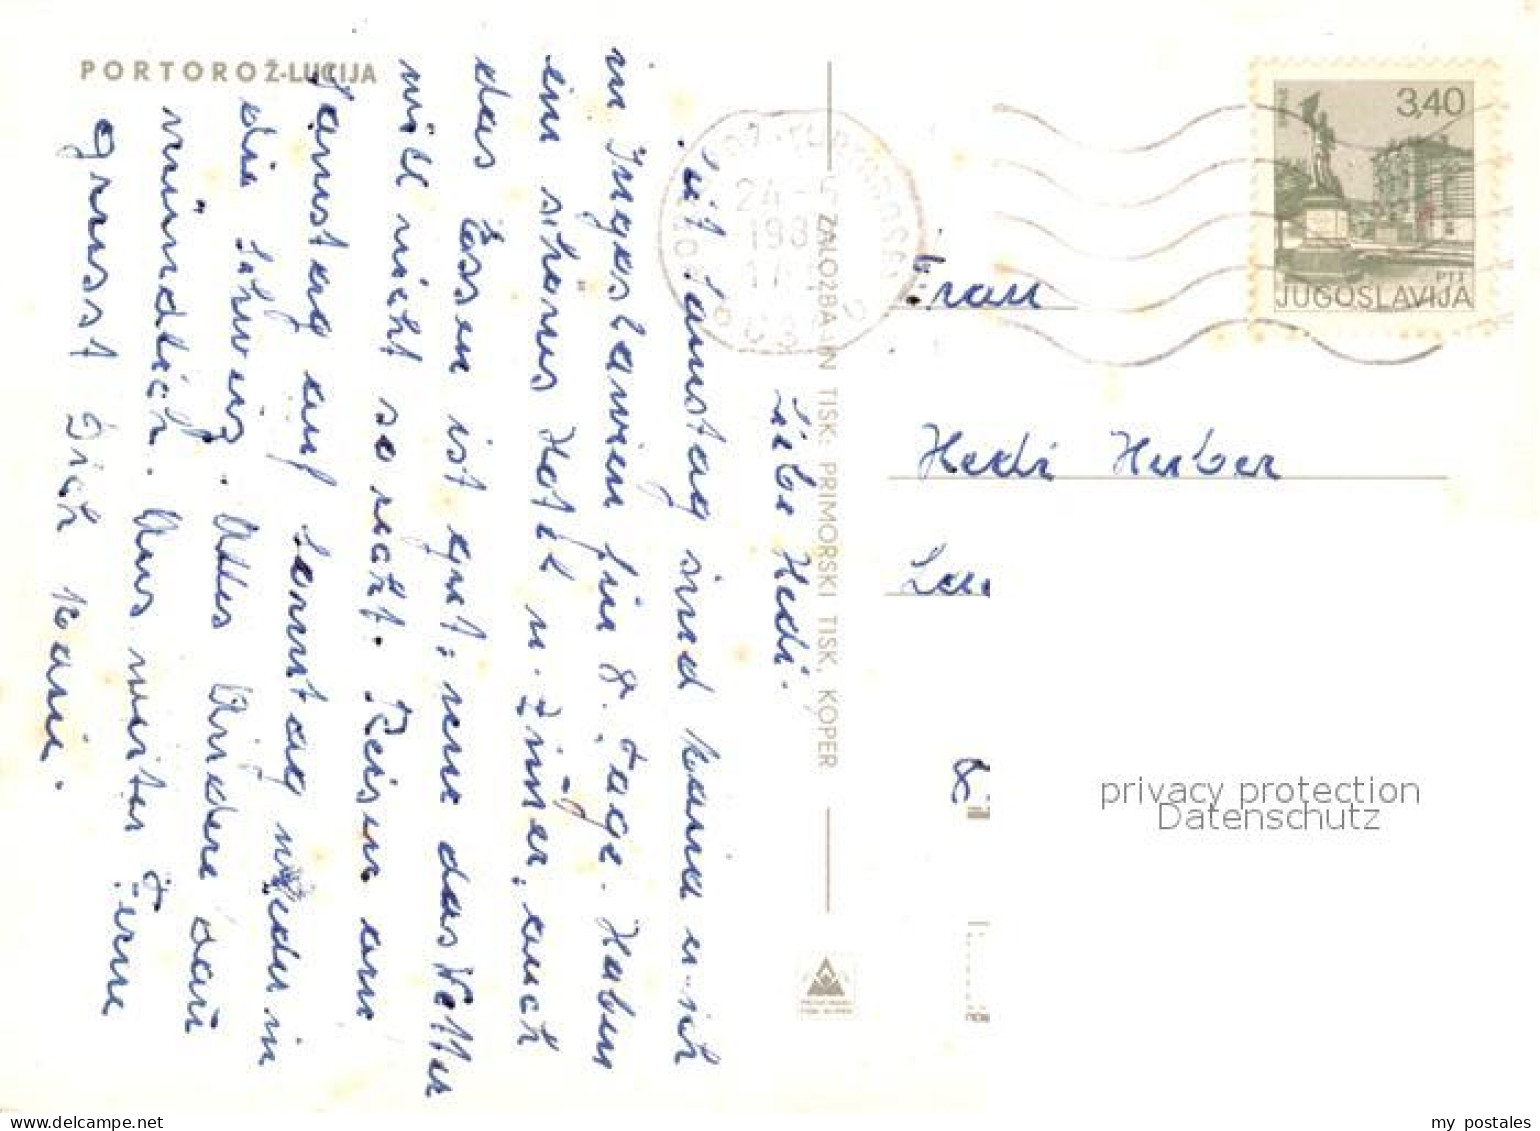 PORTOROŽ-LUCIJA
Liebe Hedi.
Seit Samstag sind Kania u. ich
in Jugoslawien für 8. Tage. Haben
ein schönes Hotel u. Zimer, auch
das Essen ist gut, nur das Wetter
will nicht so recht. Reisen am
Samstag auf Sonntag wieder in
die Schweiz. Alles Andere dan
mündlich. Aus weiter Ferne
grüsst Dich
ZALOŽBA IN TISK: PRIMORSKI TISK, KOPER
24
198
3,40
PTT
JUGOSLAVIJA
Frau
Hedi Huber
privacy protection
Datenschutz
www.delcampe.net
my_postales